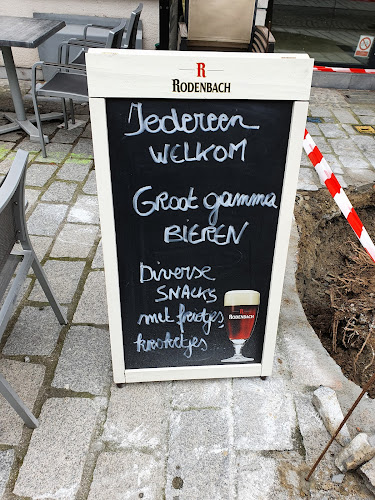 R
RODENBACH
Iedereen
WELKOM
Groot gamma
BIEREN
Diverse
SNACKS
met frietjes,
kroketjes
RODENBACH